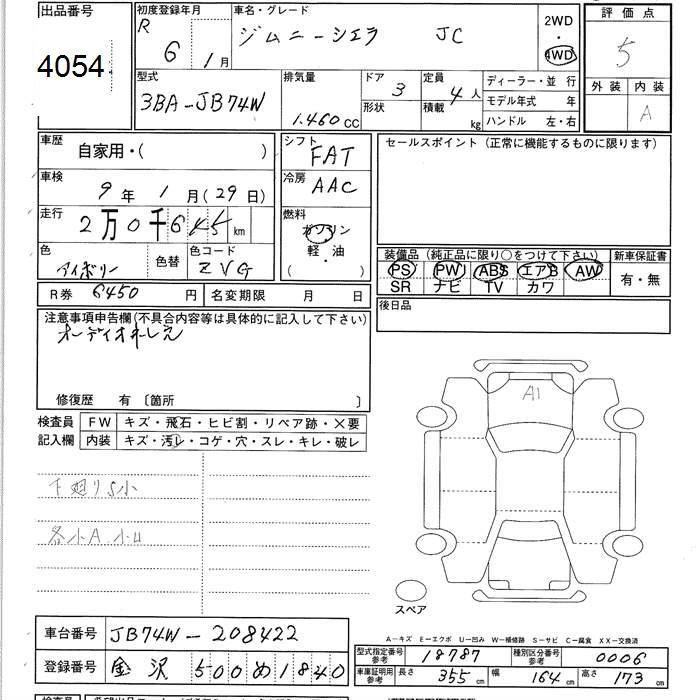 出品番号
4054
初度登録年月
R 6 1月
車名・グレード
ジムニーシエラ JC
2WD
・
4WD
評価点
5
外装 内装
A
型式
3BA-JB74W
排気量
1.460 CC
ドア 3
形状
定員 4人
積載 kg
ディーラー・並行
モデル年式 年
ハンドル 左・右
車歴
自家用・( )
車検
9年 1月(29日)
走行
2万0千6 km
色
アイボリー
色替
色コード
ZVG
シフト
FAT
冷房
AAC
燃料
ガソリン
軽・油
( )
セールスポイント (正常に機能するものに限ります)
装備品 (純正品に限り○をつけて下さい)
PS PW ABS エアB AW
SR ナビ TV カワ
新車保証書
有・無
R券 6450 円
名変期限 月 日
後日品
注意事項申告欄(不具合内容等は具体的に記入して下さい)
オーディオ
修復歴 有 〔箇所 〕
検査員
記入欄
FW キズ・飛石・ヒビ割・リペア跡・×要
内装 キズ・汚レ・コゲ・穴・スレ・キレ・破レ
下廻りS小
各小A 小U
A1
スペア
車台番号 JB74W-208422
登録番号 金沢 500め1840
A-キズ E-エクボ U-凹み W-補修跡 S-サビ C-腐食 XX-交換済
型式指定番号
参考
18787
種別区分番号
参考
0006
車庫証明用
参考
長さ 355 cm 幅 164 cm 高さ 173 cm